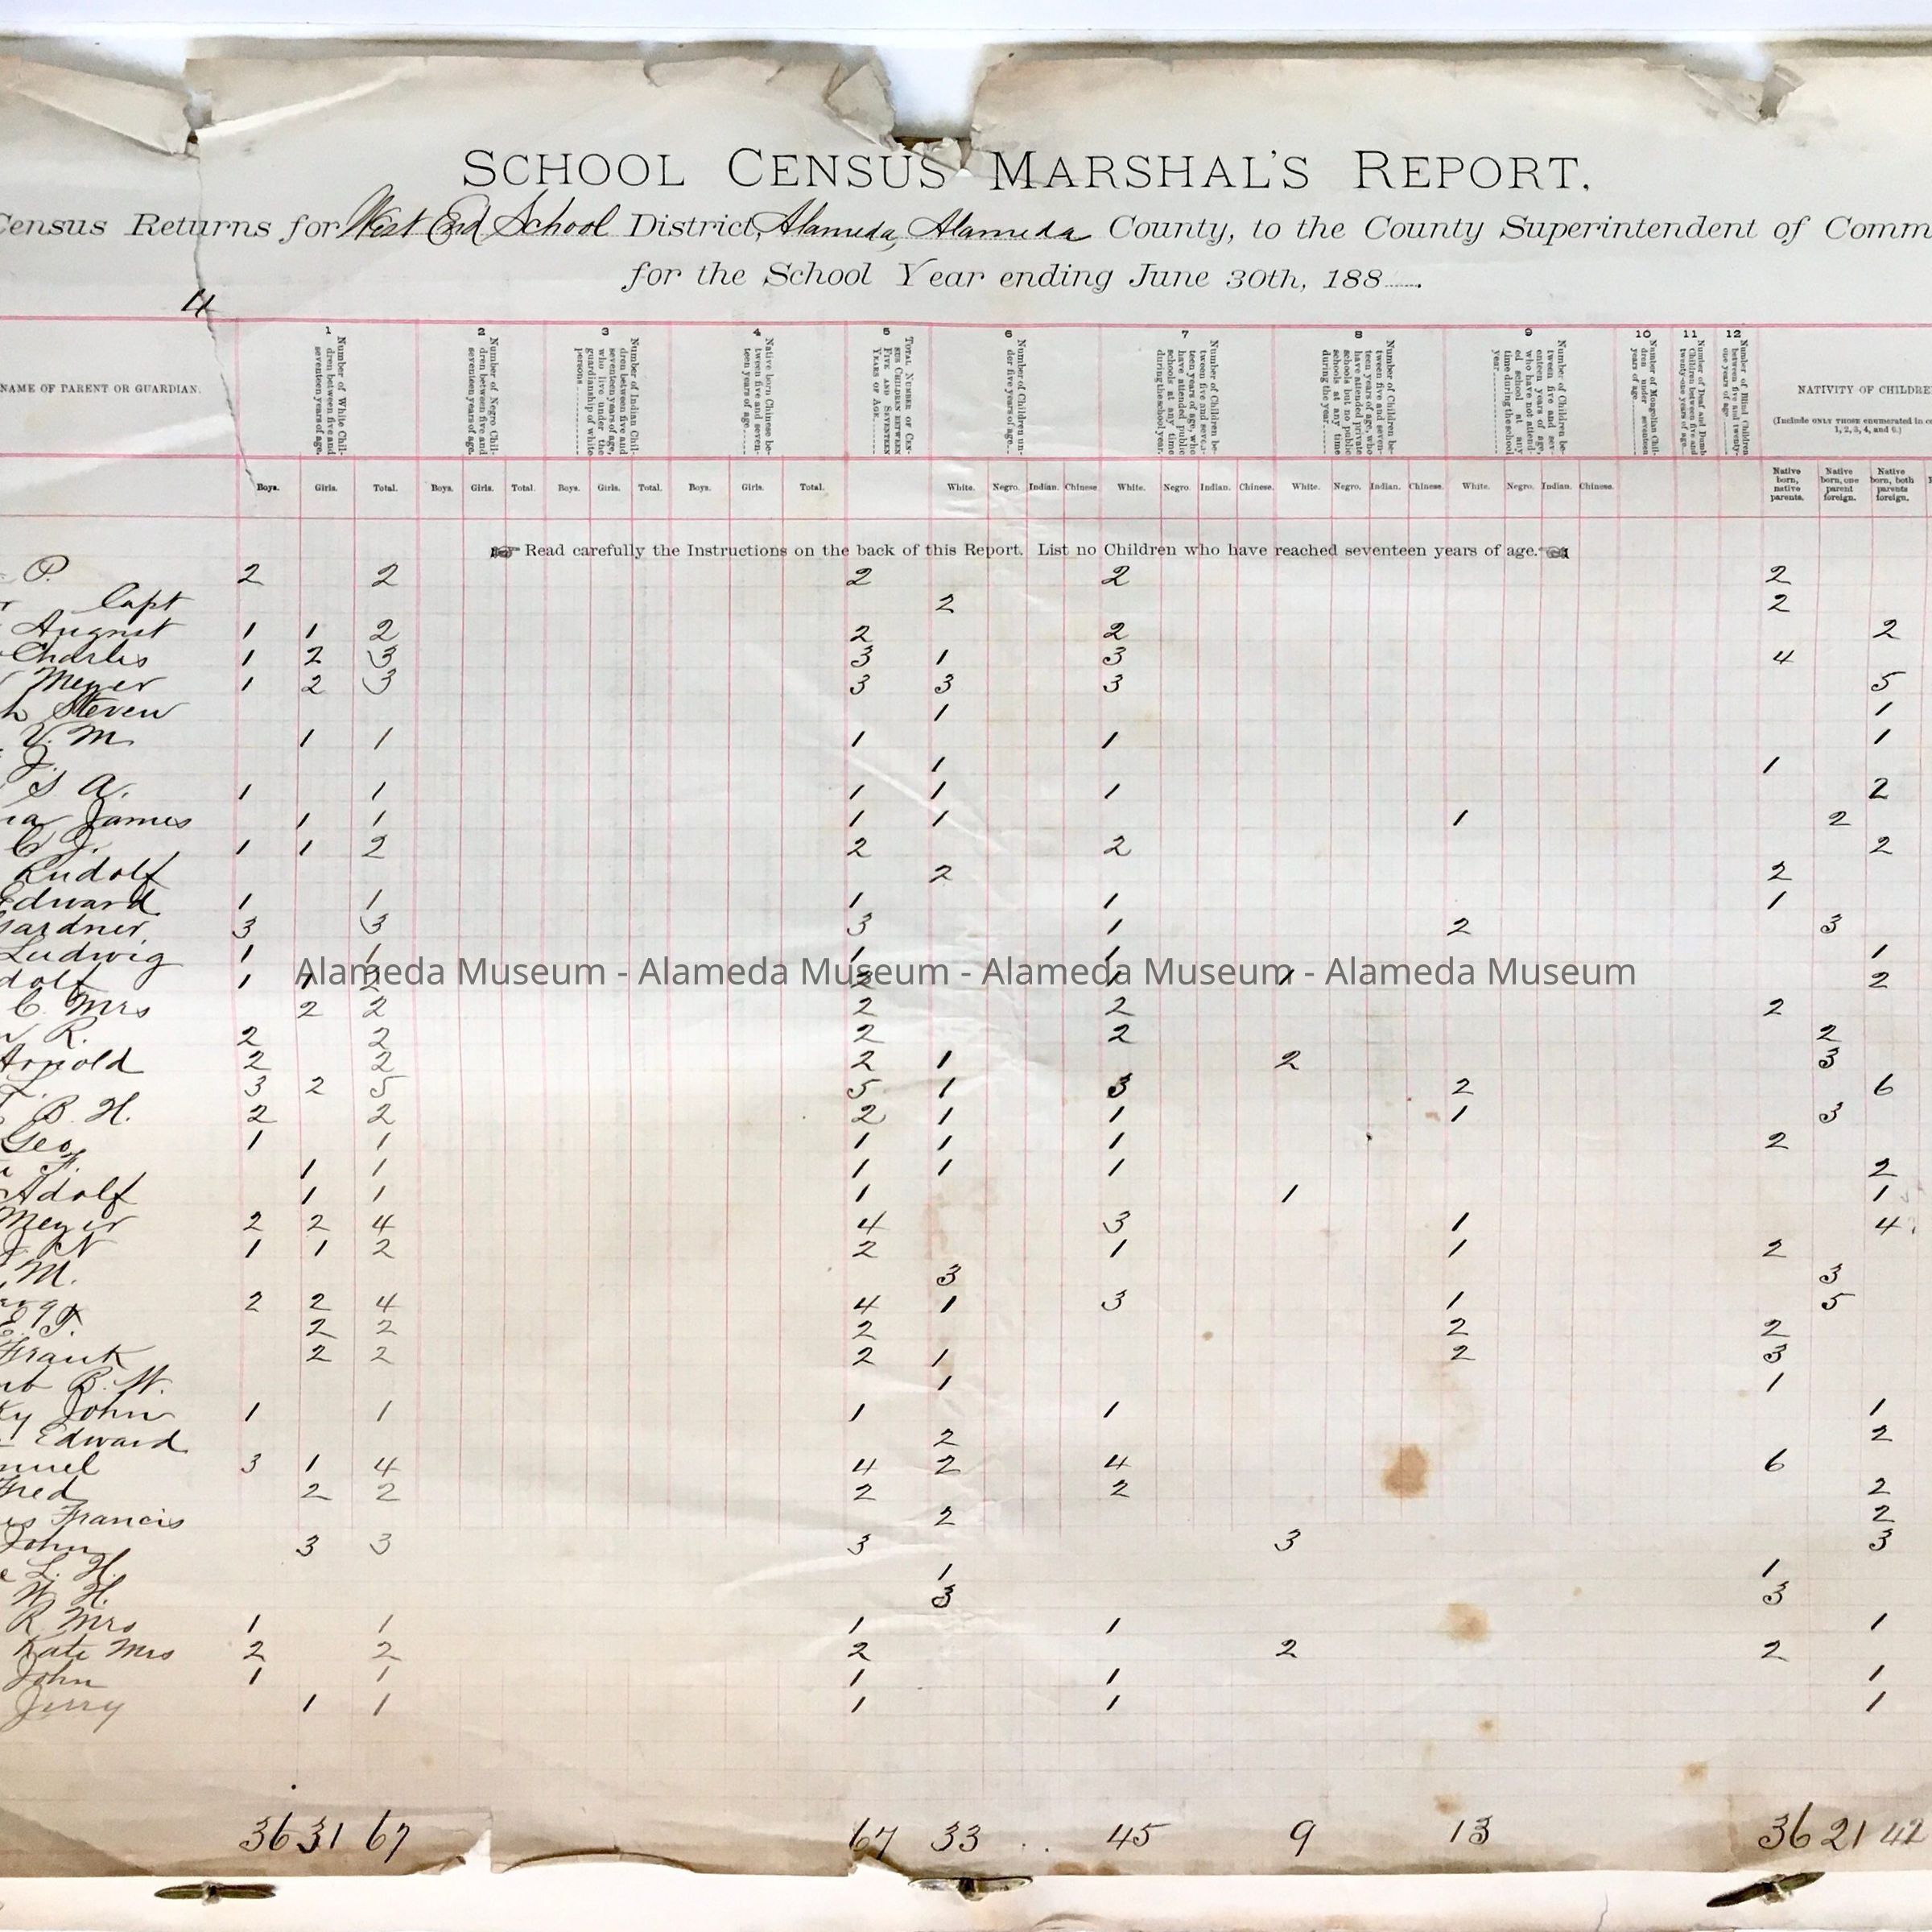 SCHOOL CENSUS MARSHAL'S REPORT.
Census Returns for West End School District, Alameda, Alameda County, to the County Superintendent of Comm
for the School Year ending June 30th, 188
4
NAME OF PARENT OR GUARDIAN.
1 Number of White Children between five and seventeen years of age.
2 Number of Negro Children between five and seventeen years of age.
3 Number of Indian Children between five and seventeen years of age, who live under the guardianship of white persons
4 Native born Chinese between five and seventeen years of age.
5 TOTAL NUMBER OF CENSUS CHILDREN BETWEEN FIVE AND SEVENTEEN YEARS OF AGE.
6 Number of Children under five years of age.
7 Number of Children between five and seventeen years of age, who have attended public schools at any time during the school year.
8 Number of Children between five and seventeen years of age, who have attended private schools but no public schools at any time during the year.
9 Number of Children between five and seventeen years of age, who have not attended school at any time during the school year.
10 Number of Mongolian Children under seventeen years of age.
11 Number of Deaf and Dumb Children between five and twenty-one years of age.
12 Number of Blind Children between five and twenty-one years of age.
NATIVITY OF CHILDRE
(Include ONLY THOSE enumerated in co 1, 2, 3, 4, and 6.)
Boys. Girls. Total. Boys. Girls. Total. Boys. Girls. Total. Boys. Girls. Total. White. Negro. Indian. Chinese. White. Negro. Indian. Chinese. White. Negro. Indian. Chinese. White. Negro. Indian. Chinese. Native born, native parents. Native born, one parent foreign. Native born, both parents foreign.
Read carefully the Instructions on the back of this Report. List no Children who have reached seventeen years of age.
P. 2 2 2 2 2
Capt 2 2
August 1 1 2 2 2 2
Charles 1 2 3 3 1 3 4
Meyer 1 2 3 3 3 3 5
h Steven 1 1
V. M. 1 1 1 1 1
J. 1 1
S A. 1 1 1 1 1 2
ia James 1 1 1 1 1 2
C J. 1 1 2 2 2 2
Rudolf 2 2
Edward 1 1 1 1 1
Gardner 3 3 3 1 2 3
Ludwig 1 1 1 1 1
Alameda Museum - Alameda Museum - Alameda Museum - Alameda Museum
dolf 1 1 2 2 1 1 2
C. Mrs 2 2 2 2 2
R. 2 2 2 2 2
Arnold 2 2 2 1 2 3
3 2 5 5 1 3 2 6
B. H. 2 2 2 1 1 1 3
Geo. 1 1 1 1 1 2
F. 1 1 1 1 1 2
Adolf 1 1 1 1 1
Meyer 2 2 4 4 3 1 4
1 1 2 2 1 1 2
M. 3 3
2 2 4 4 1 3 1 5
E. T. 2 2 2 2 2
Frank 2 2 2 1 2 3
B. W. 1 1
ky John 1 1 1 1 1
Edward 2 2
muel 3 1 4 4 2 4 6
Fred 2 2 2 2 2
Francis 2 2
John 3 3 3 3 3
L. H. 1 1
W. H. 3 3
R Mrs 1 1 1 1 1
Kate Mrs 2 2 2 2 2
John 1 1 1 1 1
Jerry 1 1 1 1 1
36 31 67 67 33 45 9 13 36 21 42